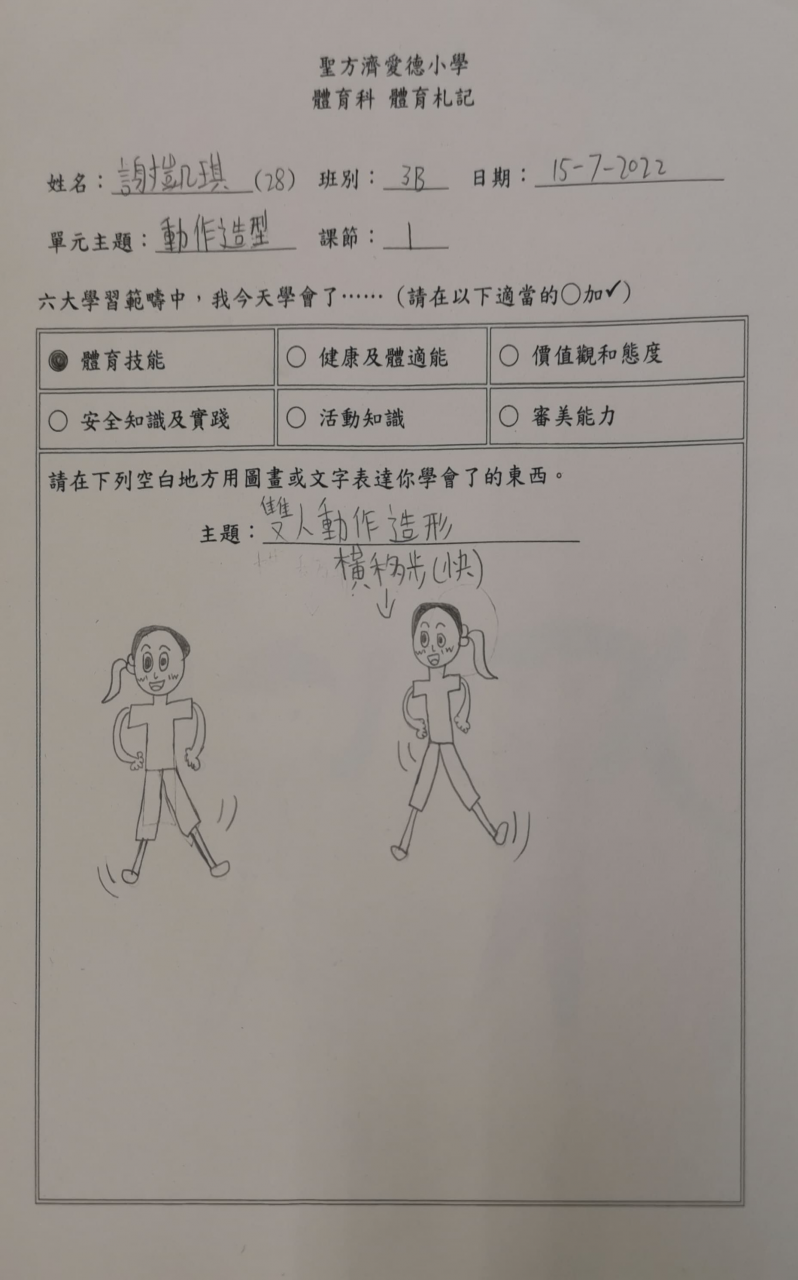 聖方濟愛德小學
體育科 體育札記
姓名：謝凱琪 (28) 班別：3B 日期：15-7-2022
單元主題：動作造型 課節：1
六大學習範疇中，我今天學會了……（請在以下適當的○加✓）
體育技能 ○ 健康及體適能 ○ 價值觀和態度
○ 安全知識及實踐 ○ 活動知識 ○ 審美能力
請在下列空白地方用圖畫或文字表達你學會了的東西。
主題：雙人動作造形
橫移步(快)